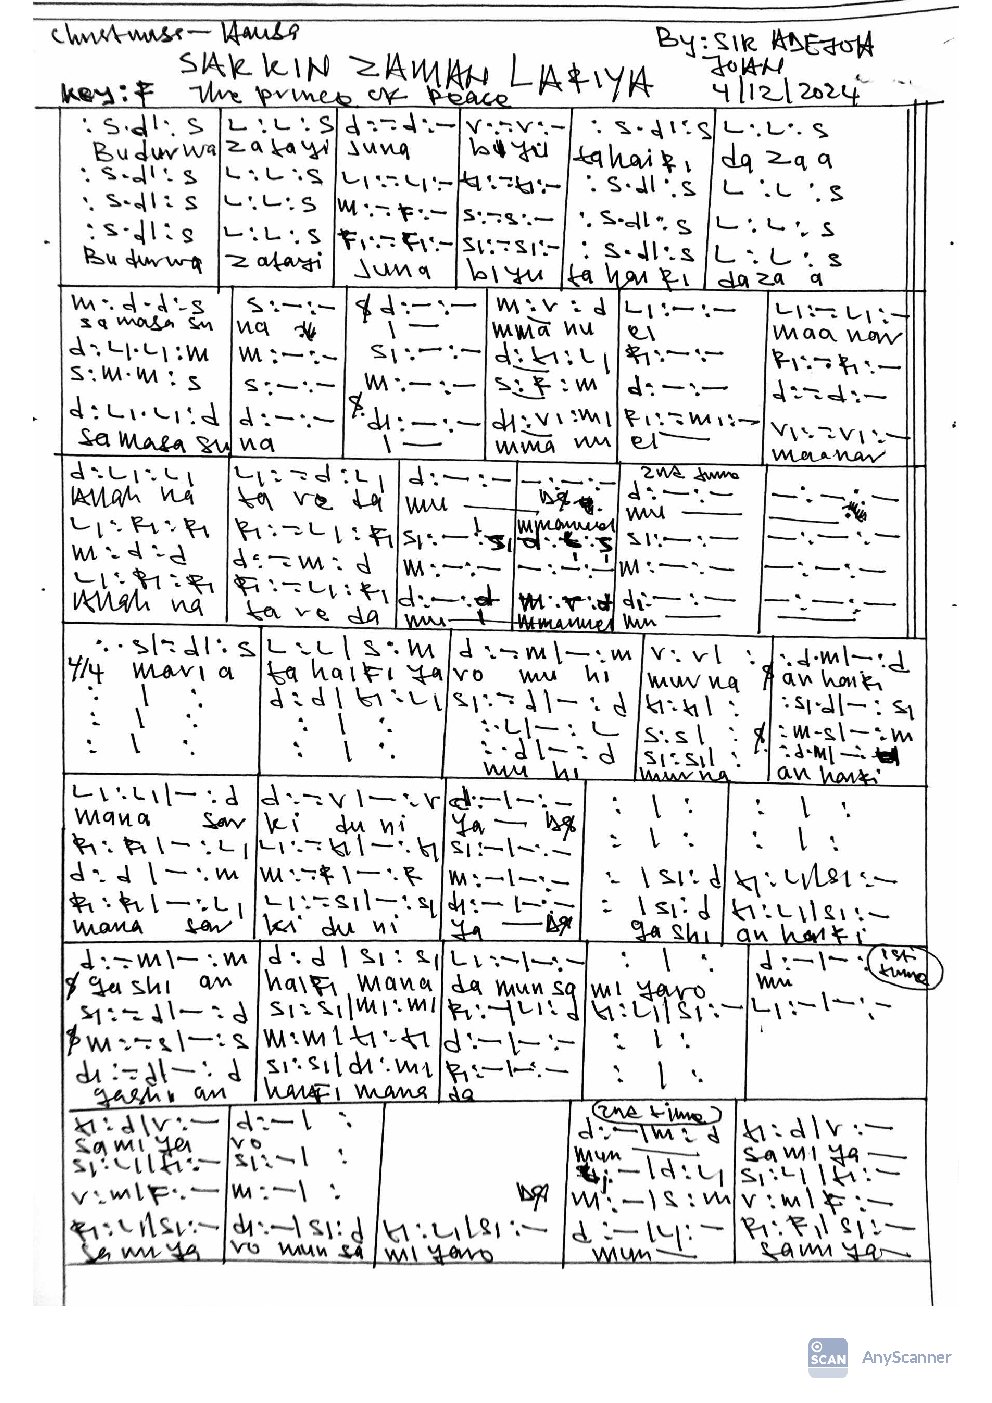 Christmass - Hausa
By: SIR ADEJOH
JOHN
SARKIN ZAMAN LAFIYA
Key: F The prince of peace
4/12/2024
: s.d|: s L:L:s d:-d:- r:-r:- : s.d|:s L:L:s
Budurwa zatayi Juna biyu tahaifi da zaa
: s.d|:s L:L:s L₁:-L₁:- t₁:-t₁:- : s.d|:s L:L:s
: s.d|:s L:L:s m:-F:- s:-s:- : s.d|:s L:L:s
: s.d|:s L:L:s F₁:-F₁:- s₁:-s₁:- : s.d|:s L:L:s
Budurwa zatayi Juna biyu tahaifi daza a
m:d.d:s s:-:- d:-:- m:r:d L₁:-:- L₁:-L₁:-
sa masa su na I mma nu el maa nar
d:L₁.L₁:m m:-:- s₁:-:- d:t₁:L₁ F₁:-:- F₁:-F₁:-
s:m.m:s s:-:- m:-:- s:F:m d:-:- d:-d:-
d:L₁.L₁:d d:-:- d₁:-:- d₁:r₁:m₁ F₁:-m₁:- r₁:-r₁:-
sa masa su na I mma nu el maanar
d:L₁:L₁ L₁:-d:L₁ d:-:- -:-:- 2nd time d:-:- -:-:-
Allah na ta re da mu DS mu
L₁:F₁:F₁ F₁:-L₁:F₁ s₁:-:s₁ mmanuel s₁:-:- -:-:-
m:d:d d:-m:d m:-:- -:-:- m:-:- -:-:-
L₁:F₁:F₁ F₁:-L₁:F₁ d:-:d m:r:d d₁:-:- -:-:-
Allah na ta re da mu I mmanuel mu
:.s|-d|:s L:L|s:m d:-m|-:m r:r| : :d.m|-:d
4/4 maria ta haifi ya ro mu hi murna an haifi
: | : d:d|t₁:L₁ s₁:-d|-:d t₁:t₁| : :s₁.d|-:s₁
: | : : | : :.L|-:L s:s| : :m.s|-:m
: | : : | : :.d|-:d s₁:s₁| : :d.m|-:d
mu hi murna an haifi
L₁:L₁|-:d d:-r|-:r d:-|-:- : | : : | :
mana sar ki du ni ya DS
F₁:F₁|-:L₁ L₁:-t₁|-:t₁ s₁:-|-:- : | : : | :
d:d|-:m m:-F|-:F m:-|-:- : |s₁:d t₁:L₁|s₁:-
F₁:F₁|-:L₁ L₁:-s₁|-:s₁ d₁:-|-:- : |s₁:d t₁:L₁|s₁:-
mana sar ki du ni ya DS gashi an haifi
d:-m|-:m d:d|s₁:s₁ L₁:-|-:- : | : d:-|-: 1st time
gashi an haifi mana da mun sa mi yaro mu
s₁:-d|-:d s₁:s₁|m₁:m₁ F₁:-|L₁:d t₁:L₁|s₁:- L₁:-|-:-
m:-s|-:s m:m|t₁:t₁ d:-|-:- : | :
d₁:-d|-:d s₁:s₁|d₁:m₁ F₁:-|-:- : | :
gashi an haifi mana da
t₁:d|r:- d:-| : 2nd time d:-|m:d t₁:d|r:-
sami ya ro mun sami ya
s₁:L₁|t₁:- s₁:-| : :-|d:L₁ s₁:L₁|t₁:-
r:m|F:- m:-| : DS m:-|s:m r:m|F:-
F₁:L₁|s₁:- d₁:-|s₁:d t₁:L₁|s₁:- d:-|L₁:- F₁:F₁|s₁:-
sa mi ya ro mun sa mi yaro mun sami ya
SCAN AnyScanner